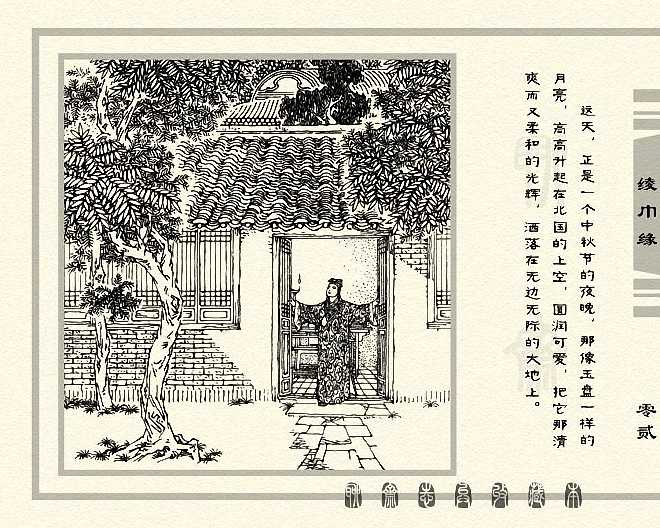 这天，正是一个中秋节的夜晚，那像玉盘一样的
月亮，高高升起在北国的上空，圆润可爱，把它那清
爽而又柔和的光辉，洒落在无边无际的大地上。
绫巾缘
零贰